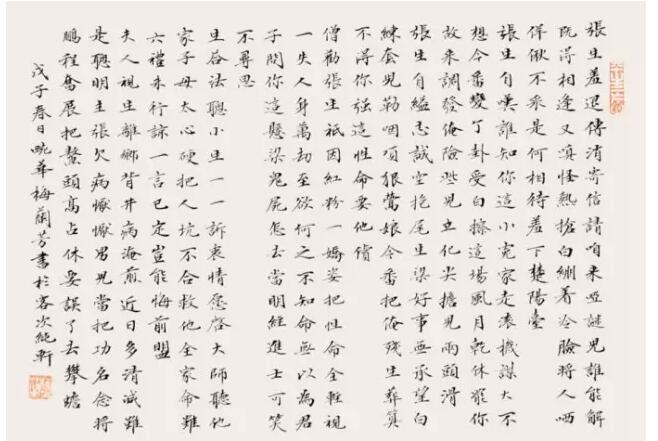 張生羞迟傳消寄信請咱來啞謎兒誰能解
既得相逢又嗔怪熱搶白綳着冷臉將人哂
佯偢不采是何相待羞下楚陽臺
張生自嘆誰知你這小冤家走滚機謀大不
想今番變了卦受白擦這場風月乾休罷你
故來調發俺險些兒立化尖擔兒兩頭滑
張生自縊志誠空抱尾生梁好事無承望白
練套兒勒咽項狠鶯娘今番把俺殘生葬算
不得你强這性命要他償
僧勸張生祇因紅粉一嬌姿把性命全輕視
一失人身萬劫至欲何之不知命無以為君
子問你這懸梁鬼屍怎去當明經進士可笑
不尋思
生答法聰小生一一訴衷情您啓大師聽他
家子母太心硬把人坑不合救他全家命難
六禮未行諒一言已定豈能悔前盟
夫人視生離鄉背井病淹前近日多清減難
是聰明主張欠病懨懨男兒當把功名念將
鵬程奮展把鰲頭高占休要誤了去攀蟾
戊子春日畹華梅蘭芳書於客次純軒